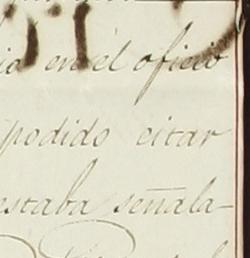 en el oficio
podido citar
estaba señala-